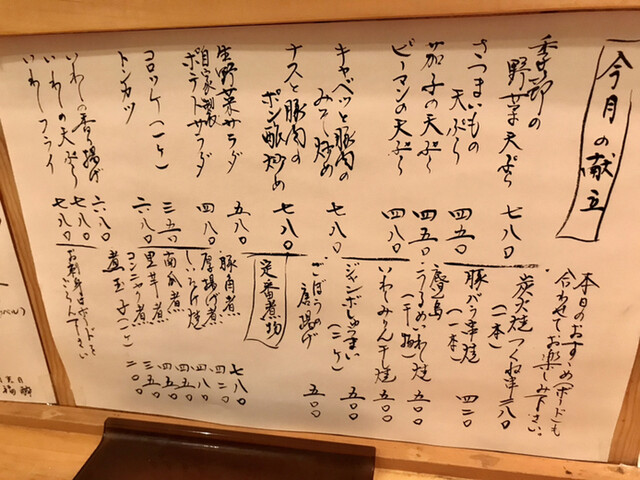 今月の献立
季節の
野菜天ぷら 七八〇
さつまいもの
天ぷら 四五〇
茄子の天ぷら 四五〇
ピーマンの天ぷら 四八〇
キャベツと豚肉の
みそ炒め 七八〇
ナスと豚肉の
ポン酢炒め 七八〇
生野菜サラダ 五八〇
自家製
ポテトサラダ 四八〇
コロッケ(一ヶ) 三五〇
トンカツ 六八〇
いわしの香り揚げ 六八〇
いわしの天ぷら 七八〇
いわしフライ 七八〇
本日のおすすめ(ボード)も
合わせてお楽しみ下さい。
炭火焼つくね串
(一本) 三八〇
豚バラ串焼
(一本) 四二〇
鹿児島
うるめいわし焼
(干し物) 五〇〇
いわしみりん干焼 五〇〇
ジャンボしゅうまい
(二ヶ) 五〇〇
ごぼうの
唐揚げ 五〇〇
定番煮物
豚肉煮 七八〇
厚揚げ煮 四二〇
しいたけ焼 四八〇
南瓜煮 四五〇
里芋煮 四五〇
コンニャク煮 三五〇
煮玉子(一ヶ) 二〇〇
お刺身はボードを
ごらん下さい